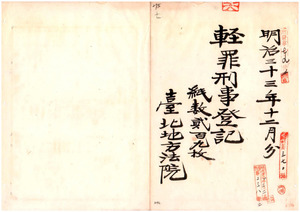 明治三十三年十二月分
軽罪刑事登記
紙数貳百九枚
臺北地方法院